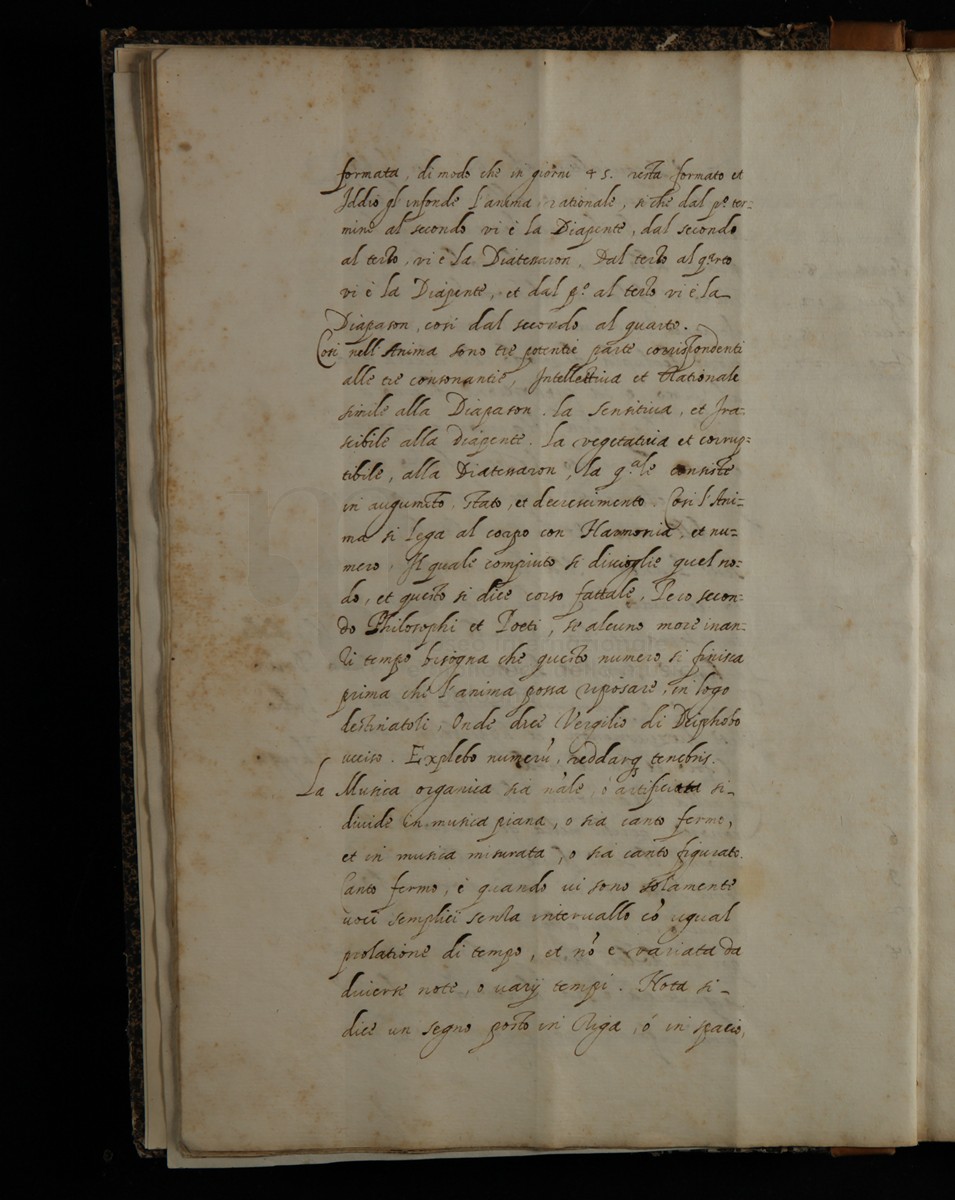 formata, di modo che in giorni 45. resta formato et
Iddio gl'infonde l'anima rationale, si che dal p.º ter=
mine al secondo vi è la Diapente, dal secondo
al terzo, vi è la Diatessaron. Dal terzo al q.rto
vi è la Diapente, et dal p.º al terzo vi è la
Diapason, così dal secondo al quarto.
Cosi nell'Anima sono tre potentie parte corrispondenti
alle tre consonantie, Intellettiua et Rationale
simile alla Diapason. la sensitiua, et Ira=
scibile alla diapente. La vegetatiua et corrup=
tibile, alla Diatessaron, la q.ale consiste
in augumẽto, stato, et decrescimento. Cosi l'Ani=
ma si lega al corpo con Harmonia, et nu=
mero. Il quale compiuto si discioglie quel no=
do, et questo si dice corso fattale. Pero secon=
do Philosophi et Poeti, se alcuno more inan=
zi tempo bisogna che questo numero si finisca
prima che l'anima possa riposare in logo
destinatoli, Onde dice Vergilio di Deiphobo
ucciso. Explebo numerũ, reddarq tenebris.
La Musica organica sia nãle, ò artificiata si
diuide in musica piana, o sia canto fermo,
et in musica misurata, o sia canto figurato.
Canto fermo, è quando ui sono solamente
uoci semplici senza interuallo cõ ugual
prolatione di tempo, et nõ e variata da
diuerse note, o varij tempi. Nota si
dice un segno posto in Riga, ó in spacio,